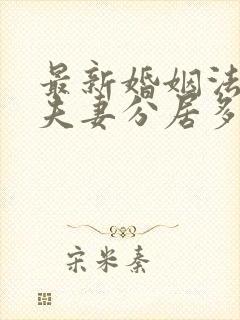 最新婚姻法
夫妻分居多
宋米秦